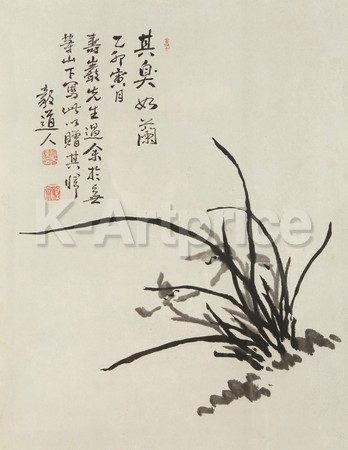 其臭如蘭
乙卯寅月
壽巖先生過余於無
等山下寫此以贈其歸
毅道人
K-Artprice